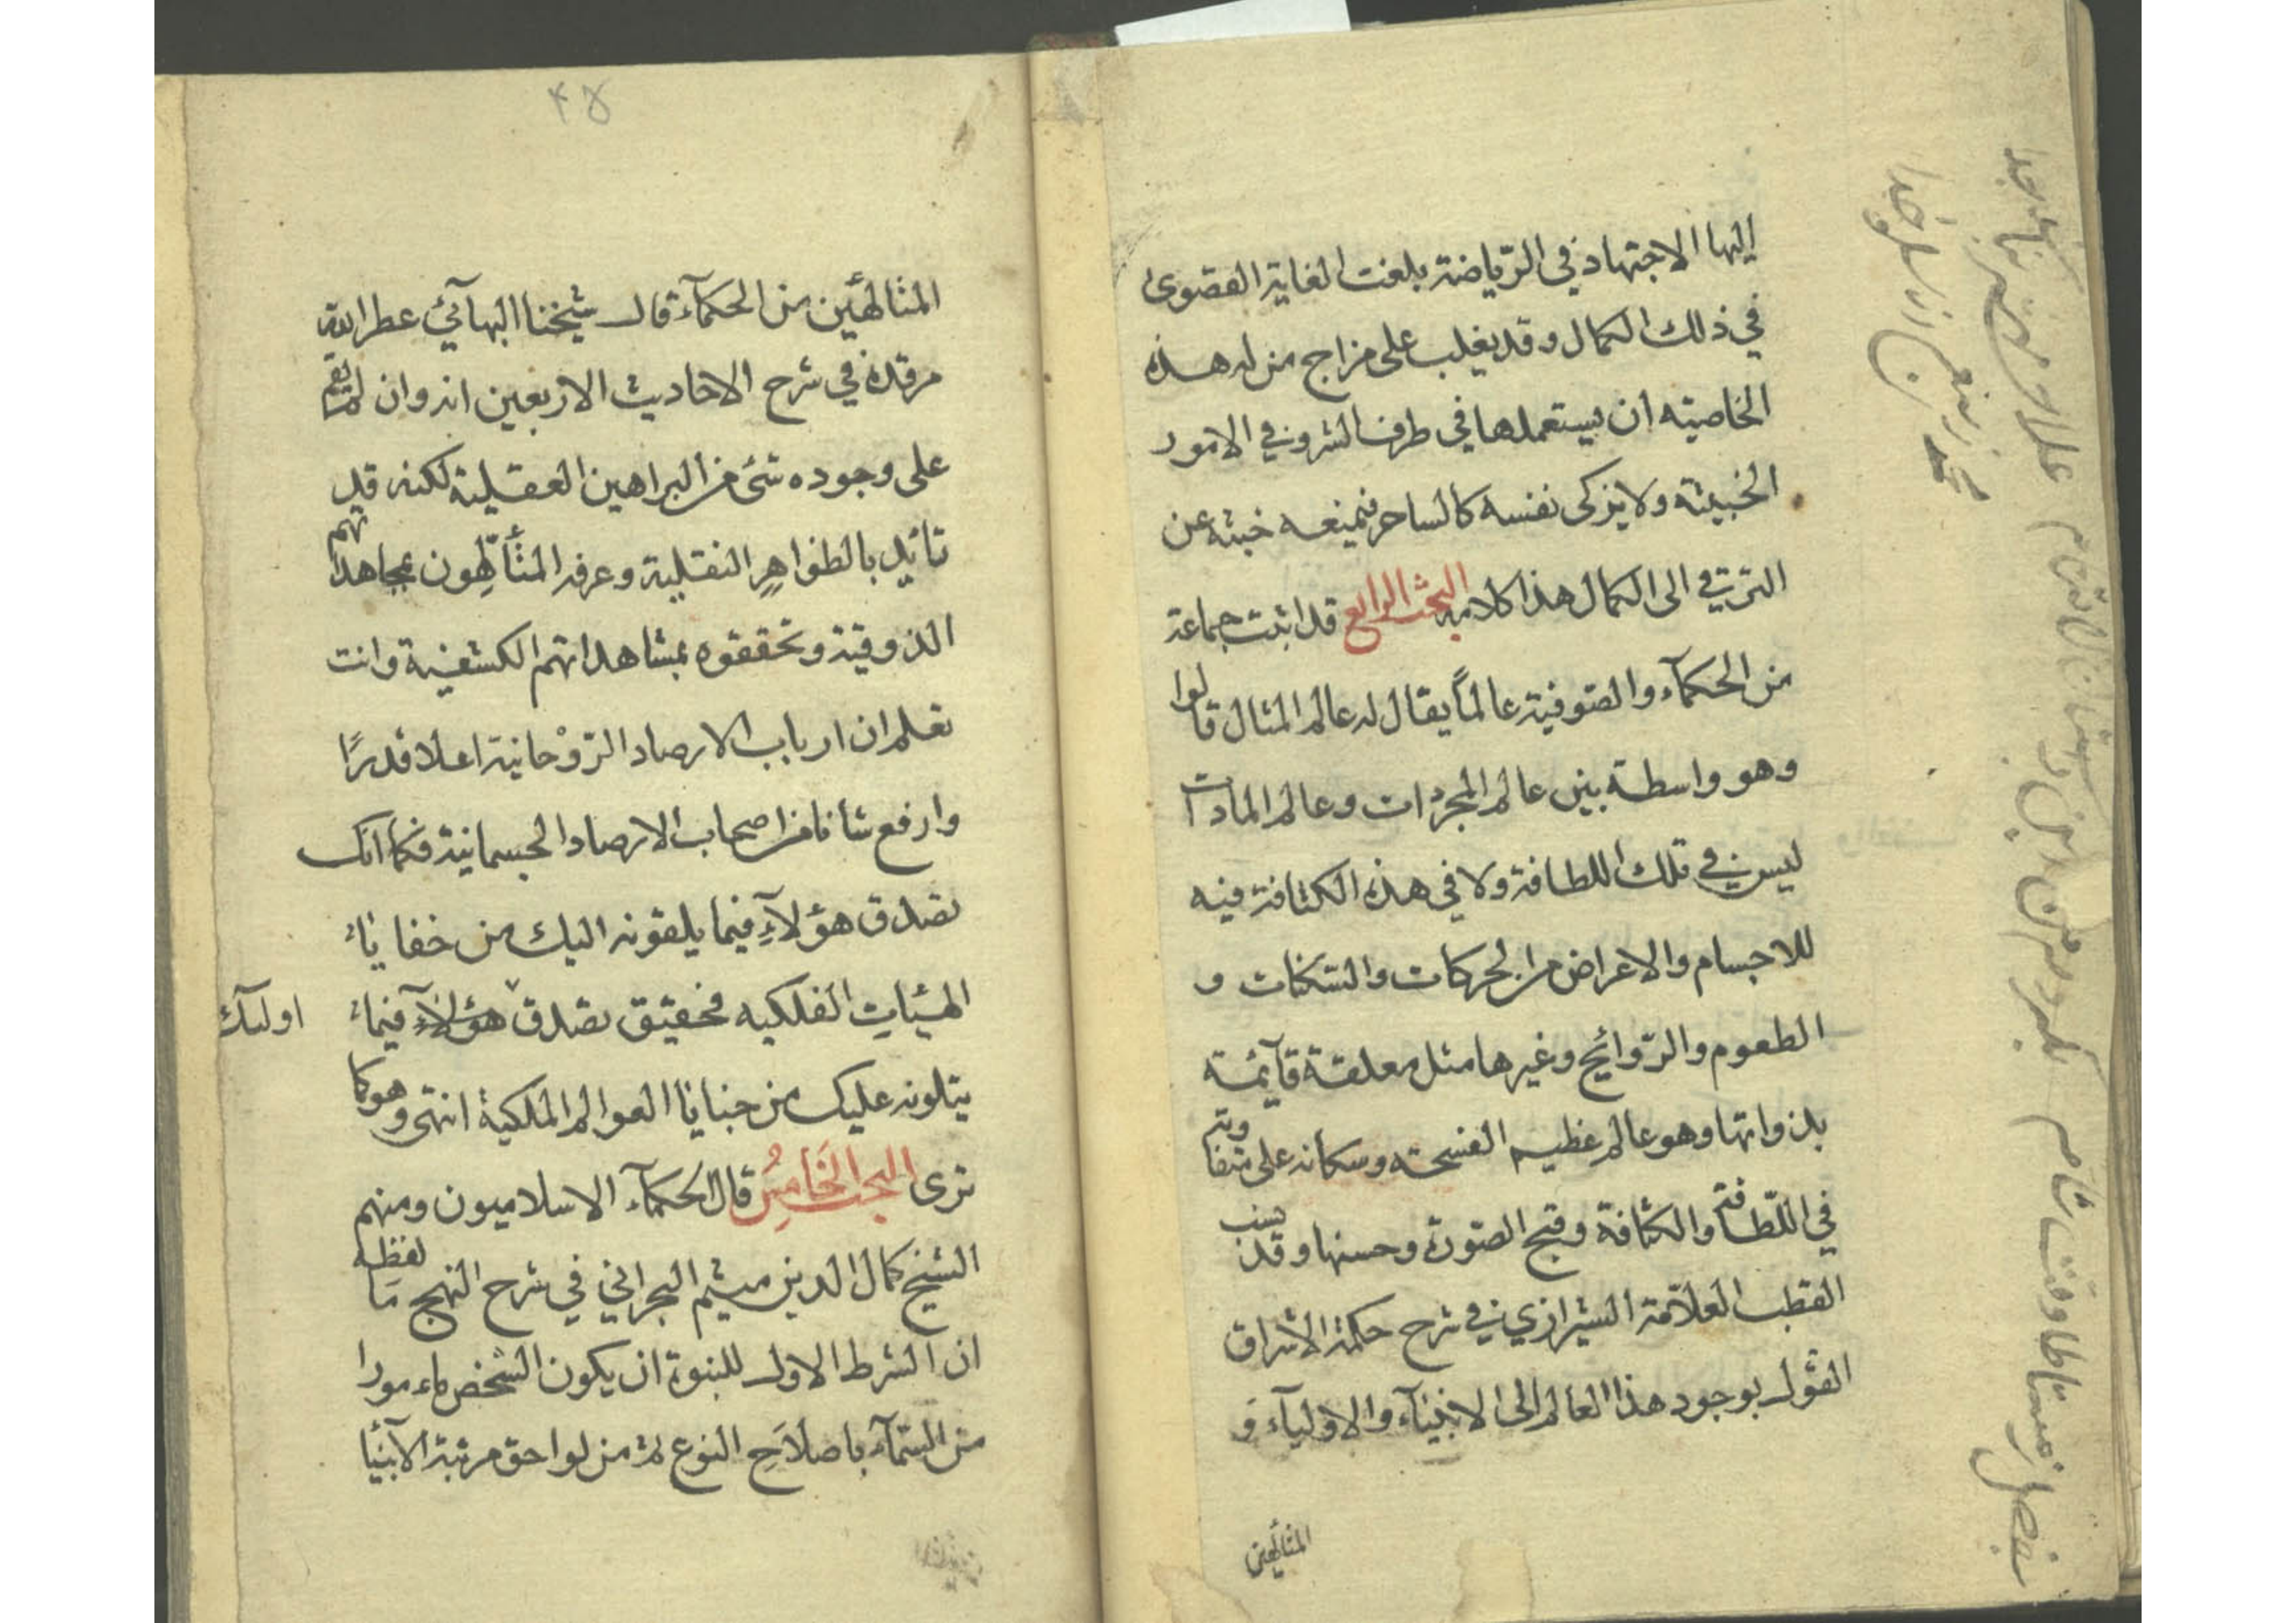 إليها الاجتهاد في الرّياضة بلغت الغاية القصوى
في ذلك الكمال وقد يغلب على مزاج من له هذه
الخاصيته ان يستعملها في طرف الشر وفي الامور
الخبيثة ولا يزكى نفسه كالساحر فيمنعه خبثه عن
الترقي الى الكمال هذا كلامه البحث الرابع قد اثبت جماعة
من الحكمآء والصّوفية عالماً يقال له عالم المثال قالوا
وهو واسطة بين عالم المجرّدات وعالم الماديات
ليس في تلك اللطافة ولا في هذه الكثافة فيه
للاجسام والاعراض من الحركات والسّكنات و
الطعوم والرّوائح وغيرها مثل معلقة قآئمة
بذواتها وهو عالم عظيم الفسحة وسكانه على متفاوتة
في اللّطافة والكثافة وقبح الصّورة وحسنها وقد نسب
القطب العلاّمة الشيرازي في شرح حكمة الاشراق
القول بوجود هذا العالم الى الانبيآء والاوليآء و
المتألهين
۴۵
المتالهّين من الحكمآء قال شيخنا البهآئي عطر الله
مرقده في شرح الاحاديث الاربعين انه وان لم يقم
على وجوده شئ من البراهين العقلية لكنه قد
تائيد بالظواهر النقلية وعرفه المتألّهون بمجاهداتهم
الذوقية وتحققوه بمشاهداتهم الكشفية وانت
تعلم ان ارباب الارصاد الرّوْحانية اعلا قدرًا
وارفع شأنا من اصحاب الارصاد الجسمانية فكما انك
تصدق هؤلآء فيما يلقونه اليك من خفايا
الهيئات الفلكيه فحقيق تصدق هؤلآء فيما
اولئك
يتلونه عليك من خبايا العوالم الملكية انتهى وهو كما
ترى البحث الخَامِسُ قال الحكمآء الاسلاميون ومنهم
الشيخ كمال الدين ميثم البحراني في شرح النهج ما لفظه
ان الشرط الاول للنبوة ان يكون الشخص ماءمورا
من السّمآء باصلاَح النوع ثم من لواحق مرتبة الآنبيا